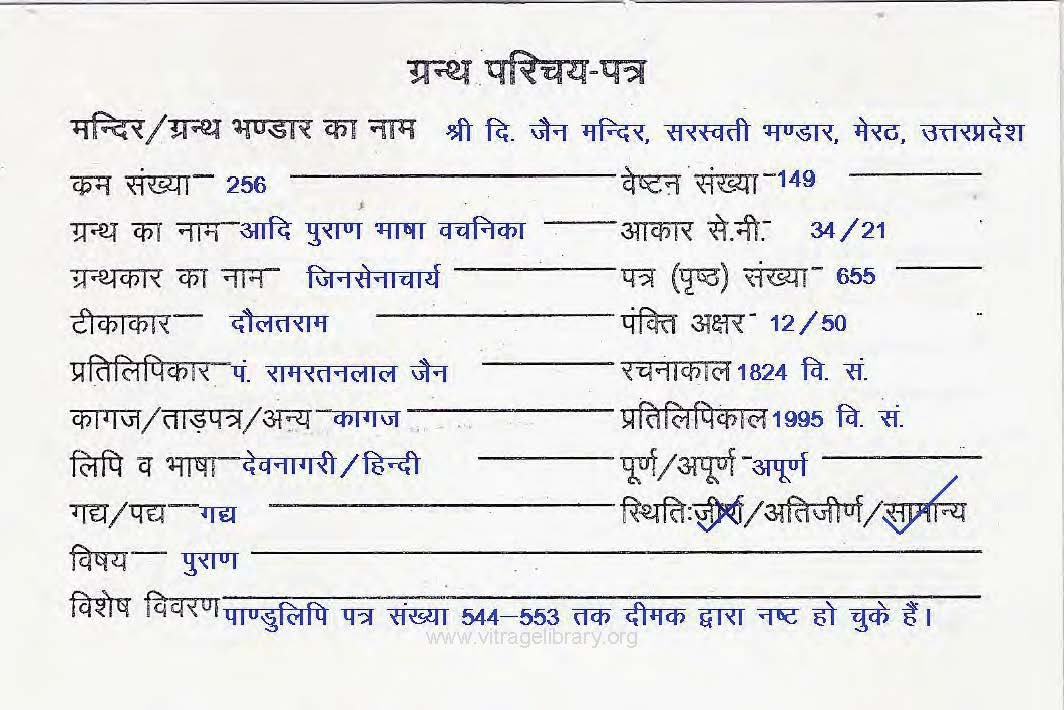 ग्रन्थ परिचय-पत्र
मन्दिर/ग्रन्थ भण्डार का नाम श्री दि. जैन मन्दिर, सरस्वती भण्डार, मेरठ, उत्तरप्रदेश
क्रम संख्या 256 वेष्टन संख्या 149
ग्रन्थ का नाम आदि पुराण भाषा वचनिका आकार से.मी. 34/21
ग्रन्थकार का नाम जिनसेनाचार्य पत्र (पृष्ठ) संख्या 655
टीकाकार दौलतराम पंक्ति अक्षर 12/50
प्रतिलिपिकार पं. रामरतनलाल जैन रचनाकाल 1824 वि. सं.
कागज/ताड़पत्र/अन्य कागज प्रतिलिपिकाल 1995 वि. सं.
लिपि व भाषा देवनागरी/हिन्दी पूर्ण/अपूर्ण अपूर्ण
गद्य/पद्य गद्य स्थितिः जीर्ण/अतिजीर्ण/सामान्य
विषय पुराण
विशेष विवरण पाण्डुलिपि पत्र संख्या 544-553 तक दीमक द्वारा नष्ट हो चुके हैं।
www.vitragelibrary.org